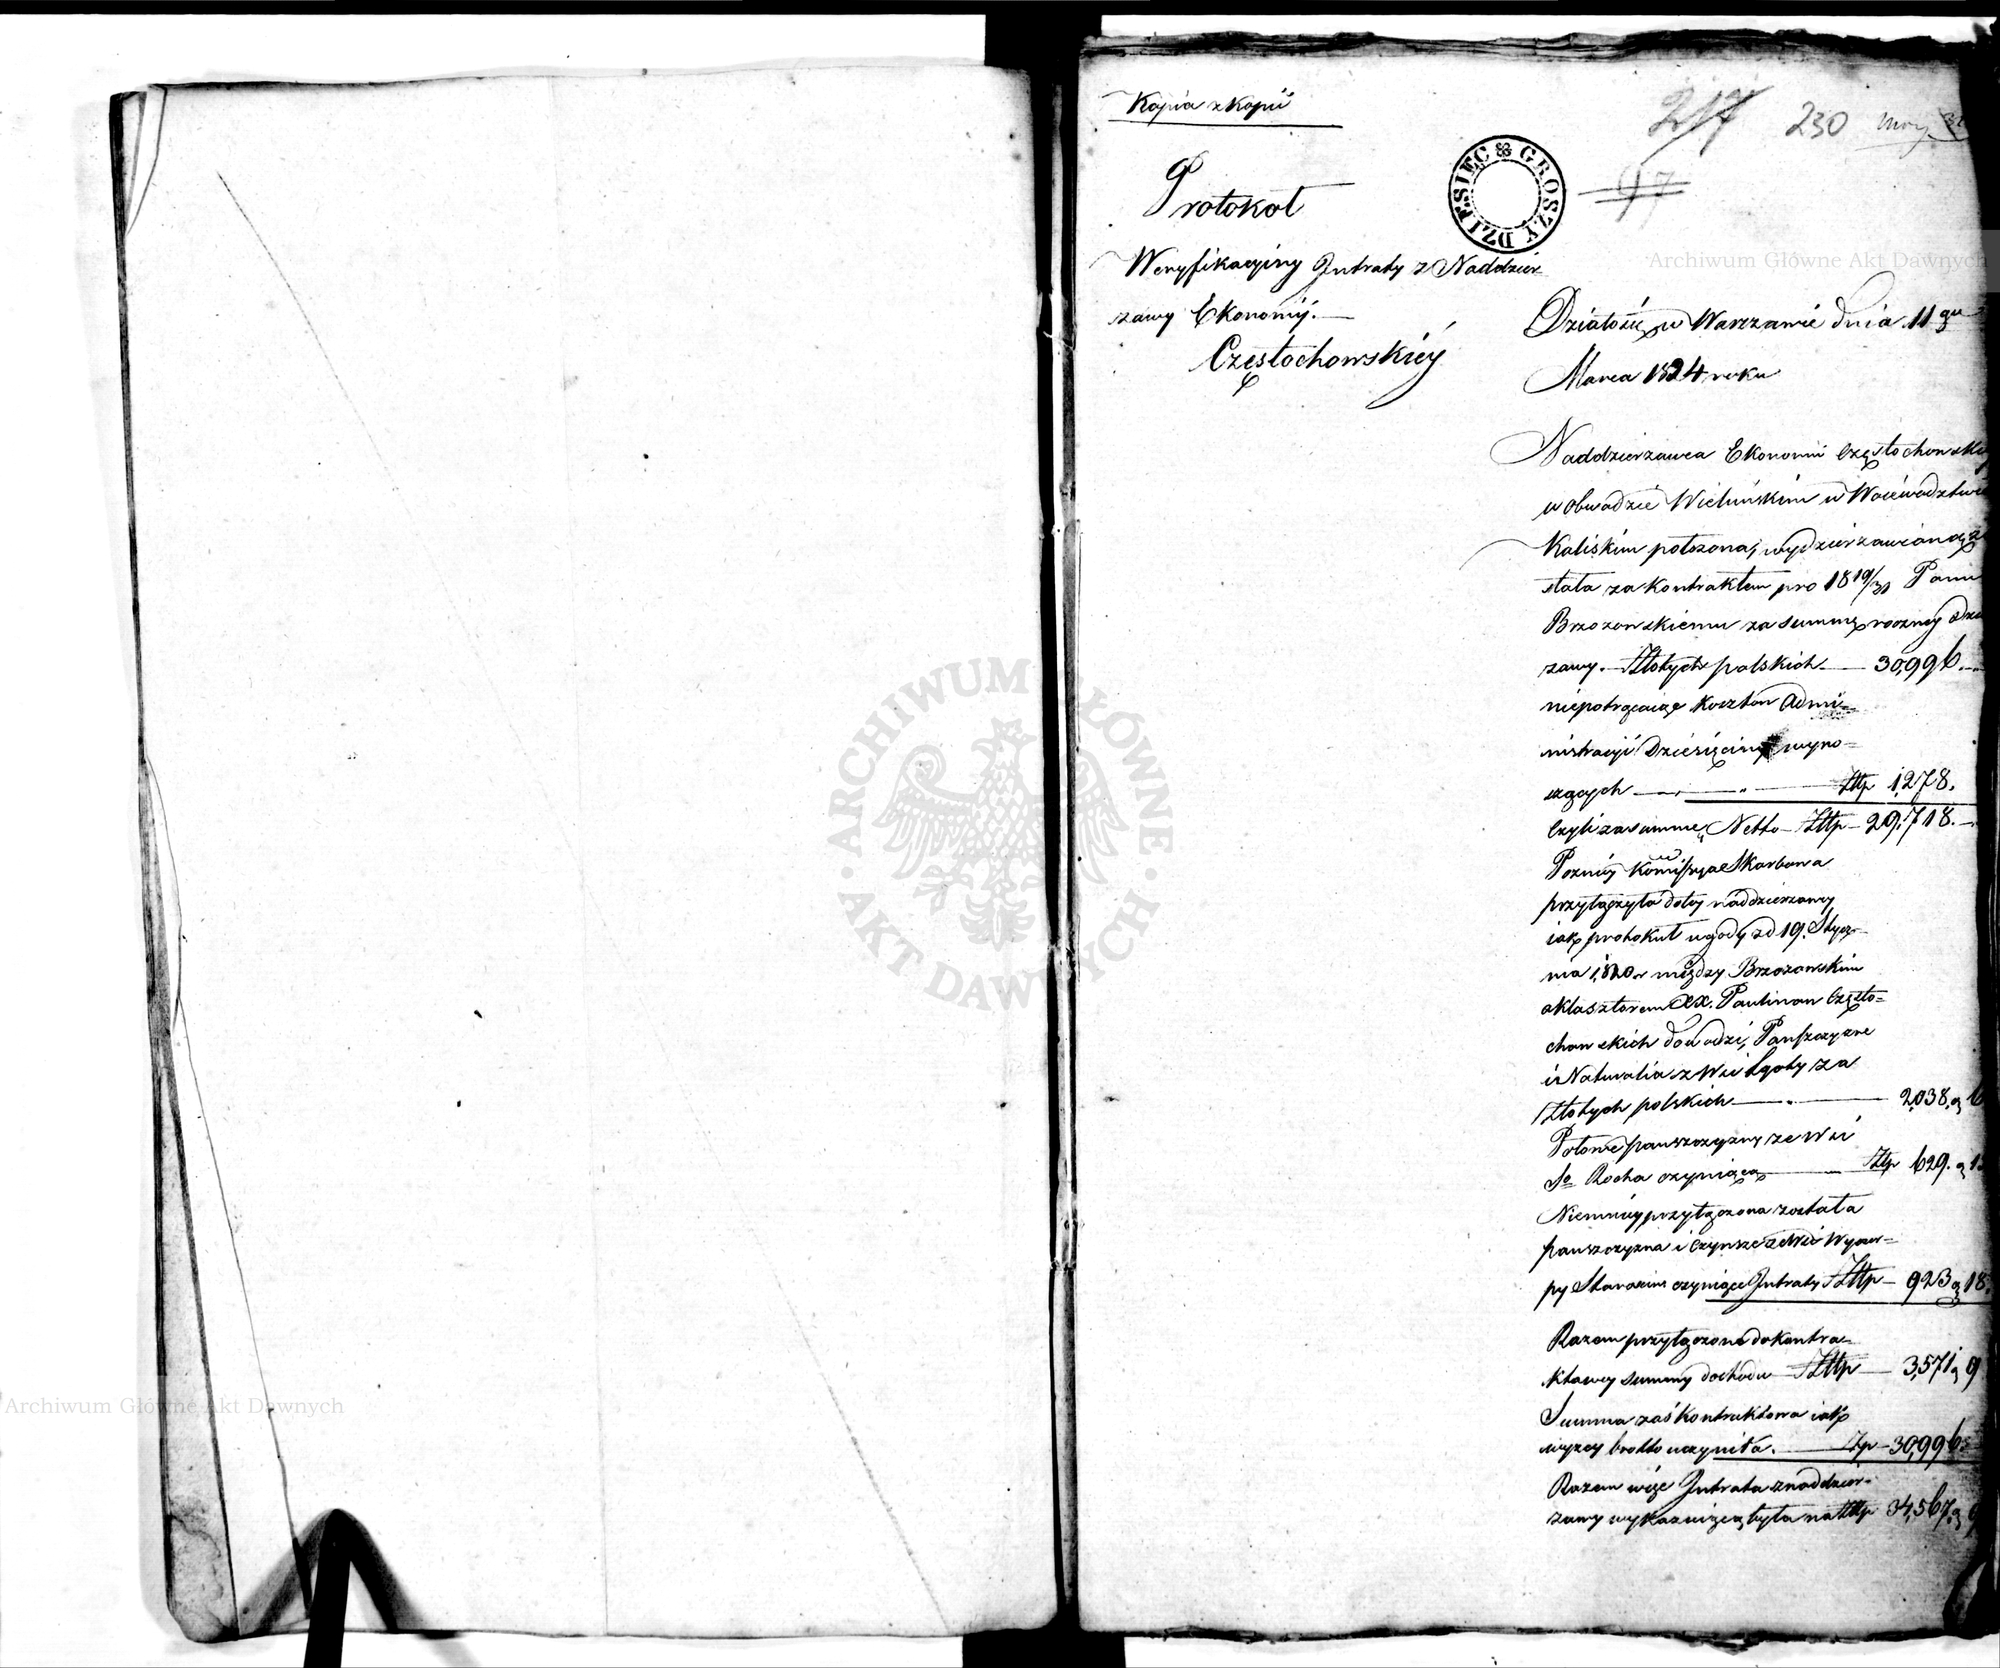 Kopia z kopii
217 230
97
DZIESIĘC GROSZY
Protokoł
Weryfikacyiny Jntraty z Naddzier
zawy Ekonomij.
Częstochowskiéy
Działosię w Warszawie dnia 11go
Marca 1824 roku
Naddzierzawca Ekonomii Częstochowskiey
w Obwodzie Wieluńskim w Woiewodztwie
Kaliskim położona, wydzierzawioną zo
stała za Kontraktem pro 1819/31 Panu
Brzozowskiemu za summę roczney dzier
zawy. Złłotych polskich 30,996.
niepotrącaiąc kosztow Admi-
nistracyi Dziesięciny wyno-
szących Złtp 1,278.
Czyli za summę Netto Złtp 29,718.
Pozniéy Kommissya Skarbowa
przyłączyła do téy naddzierzawy
iak protokuł ugody z d 19. Stycz-
nia 1820 r między Brzozowskim
a klasztorem XX. Paulinow Często-
chowskich dowodzi, Panszczyzne
i Naturalia z Wsi Lgoty za
Złotych polskich 2,038, g 6
Połowe panszczyzny ze Wsi
So Rocha czyniącą Złtp 629. g 15
Niemniéy przyłączona została
panszczyzna i Czynsze ze Wsi Wyczer-
py Starozin czyniące Jntraty Złtp 923 g 18.
Razem przyłączono do kontra-
ktowey summy dochodu Złtp 3,571 g 9
Summa zaś kontraktowa iak
wyzey brutto uczyniła. Złp 30,996
Razem więc Jntrata z naddzier-
zawy wykazuiącą była na Złtp 34,567, g 9
Archiwum Główne Akt Dawnych
ARCHIWUM GŁÓWNE AKT DAWNYCH
Archiwum Główne Akt Dawnych